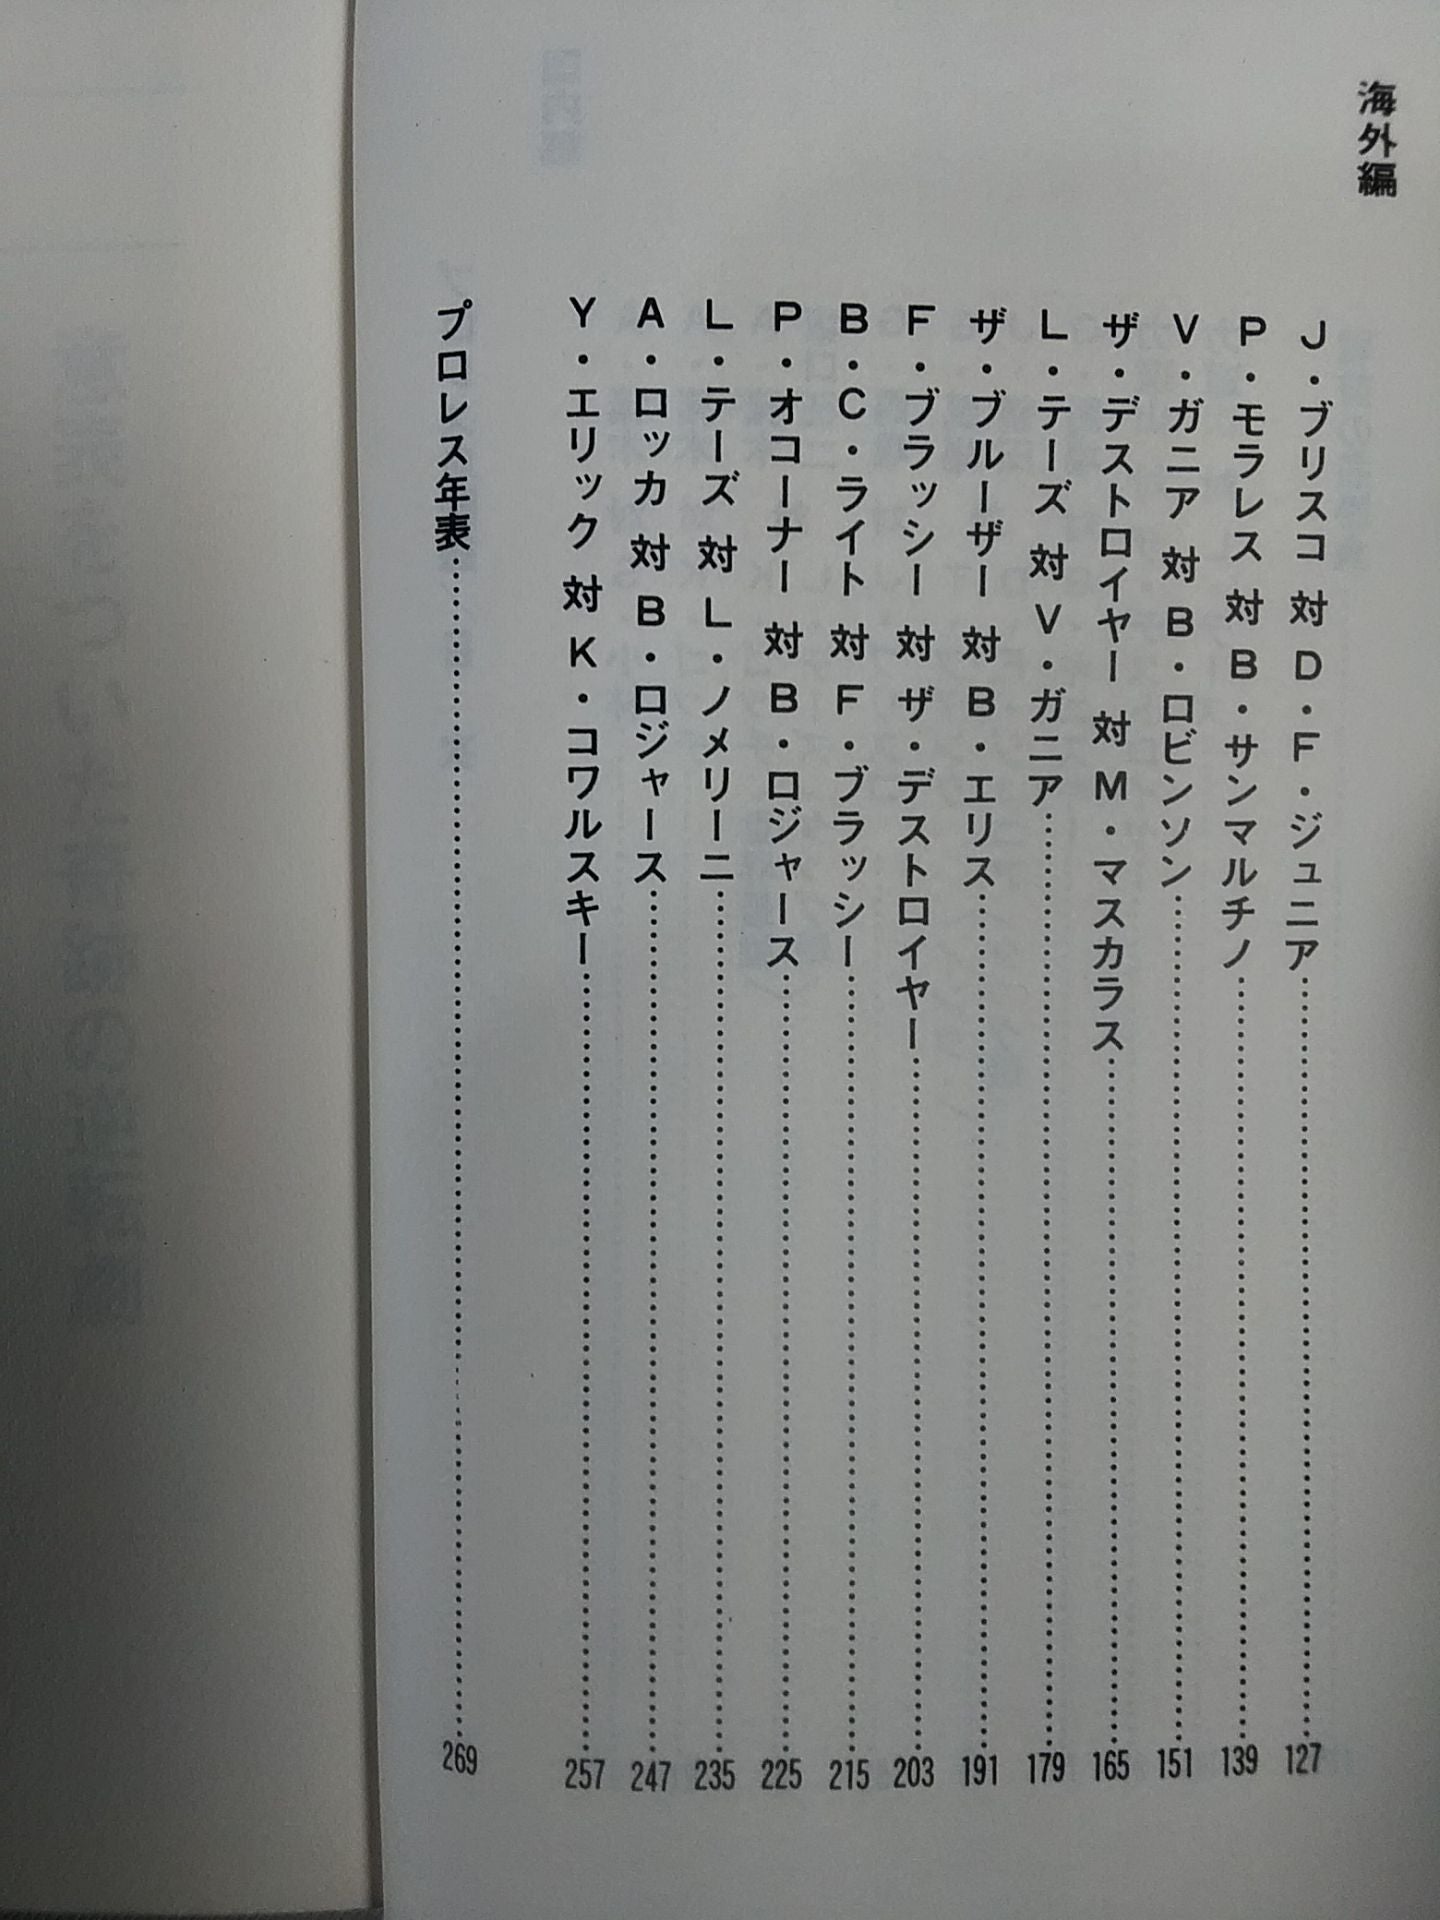 海外編
J・ブリスコ 対 D・F・ジュニア……127
P・モラレス 対 B・サンマルチノ……139
V・ガニア 対 B・ロビンソン……151
ザ・デストロイヤー 対 M・マスカラス……165
L・テーズ 対 V・ガニア……179
ザ・ブルーザー 対 B・エリス……191
F・ブラッシー 対 ザ・デストロイヤー……203
B・C・ライト 対 F・ブラッシー……215
P・オコーナー 対 B・ロジャース……225
L・テーズ 対 L・ノメリーニ……235
A・ロッカ 対 B・ロジャース……247
Y・エリック 対 K・コワルスキー……257
プロレス年表……269